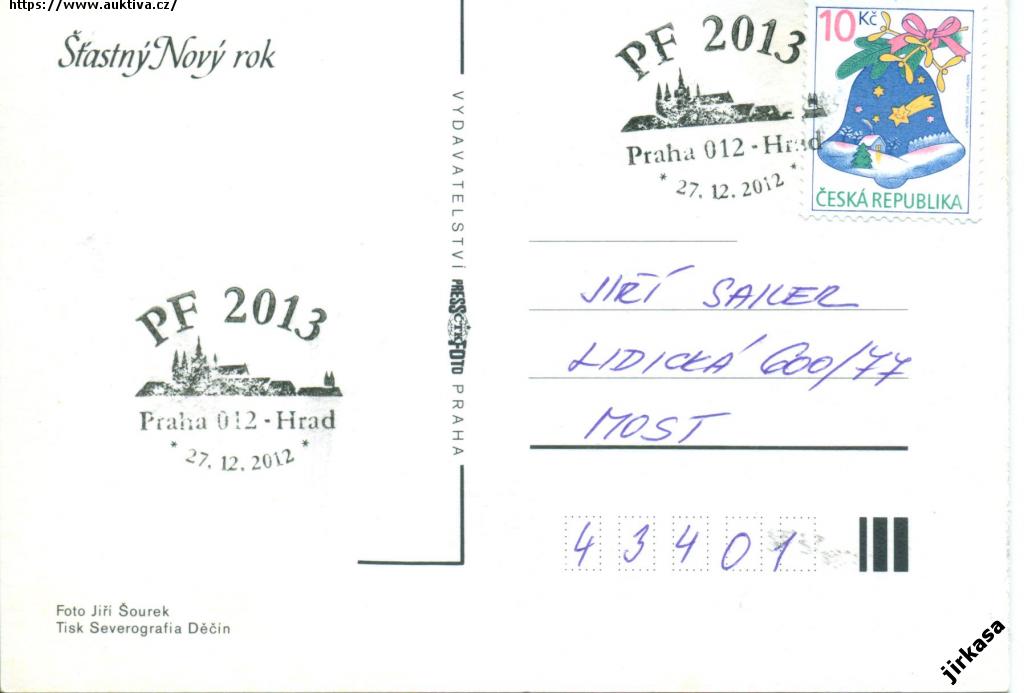 https://www.auktiva.cz/
Šťastný Nový rok
PF 2013
Praha 012 - Hrad
* 27.12.2012 *
Foto Jiří Šourek
Tisk Severografia Děčín
VYDAVATELSTVÍ PRESSFOTO PRAHA
ČTK
PF 2013
Praha 012 - Hrad
* 27.12.2012 *
10 Kč
ČESKÁ REPUBLIKA
JIŘÍ SAILER
LIDICKÁ 600/77
MOST
43401
jirkasa